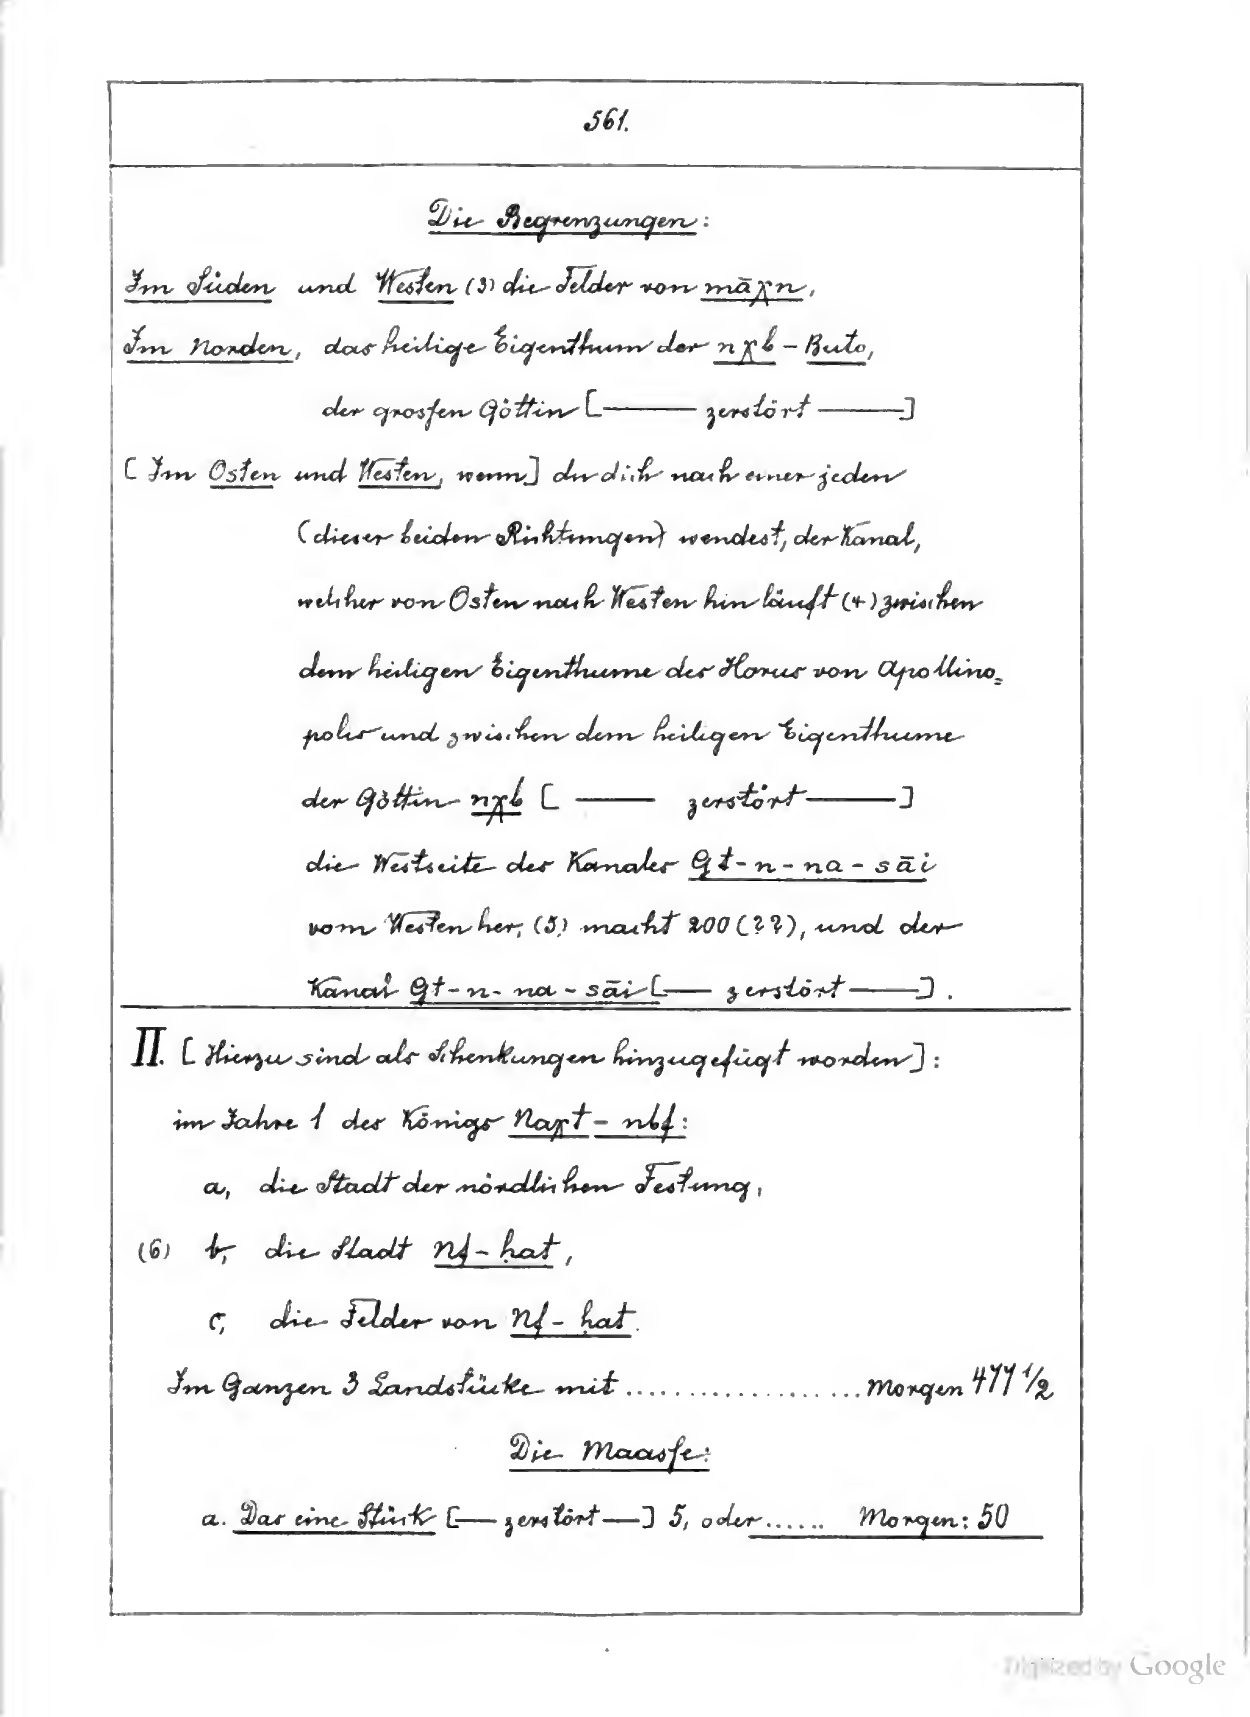 561.
Die Begrenzungen:
Im Süden und Westen (3) die Felder von māχn,
Im Norden, das heilige Eigenthum der nχb - Buto,
der grosſen Göttin [—— zerstört ——]
[Im Osten und Westen, wenn] du dich nach einer jeden
(dieser beiden Richtungen) wendest, der Kanal,
welcher von Osten nach Westen hin läuft (4) zwischen
dem heiligen Eigenthume des Horus von Apollino=
polis und zwischen dem heiligen Eigenthume
der Göttin nχb [—— zerstört ——]
die Westseite des Kanales Gt-n-na-sāi
vom Westen her, (5) macht 200 (??), und der
Kanal Gt-n-na-sāi [—— zerstört ——].
II. [Hierzu sind als Schenkungen hinzugefügt worden]:
im Jahre 1 des Königs Naχt-nbf:
a, die Stadt der nördlichen Festung,
(6) b, die Stadt Nf-ḥat,
c, die Felder von Nf-ḥat.
Im Ganzen 3 Landstücke mit ................... Morgen 477 1/2
Die Maasſe:
a. Das eine Stück [—— zerstört ——] 5, oder ...... Morgen: 50
Digitized by Google